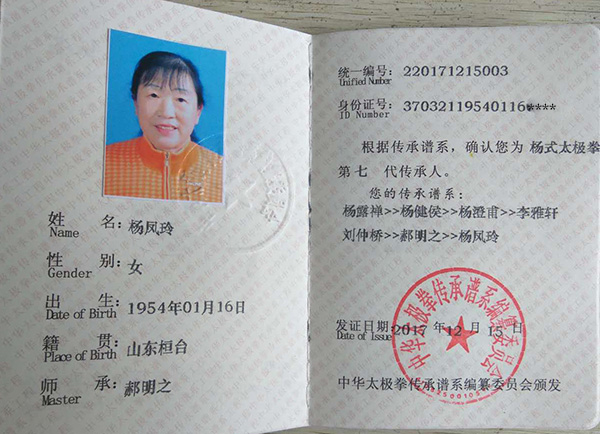 姓名：杨凤玲
Name
性别：女
Gender
出生：1954年01月16日
Date of Birth
籍贯：山东桓台
Place of Birth
师承：郝明之
Master
统一编号：220171215003
Unified Number
身份证号：37032119540116****
ID Number
根据传承谱系，确认您为 杨式太极拳
第七 代传承人。
您的传承谱系：
杨露禅>>杨健侯>>杨澄甫>>李雅轩
刘仲桥>>郝明之>>杨凤玲
发证日期：2017 年 12 月 15 日
Date of Issue
中华太极拳传承谱系编纂委员会
中华太极拳传承谱系编纂委员会颁发